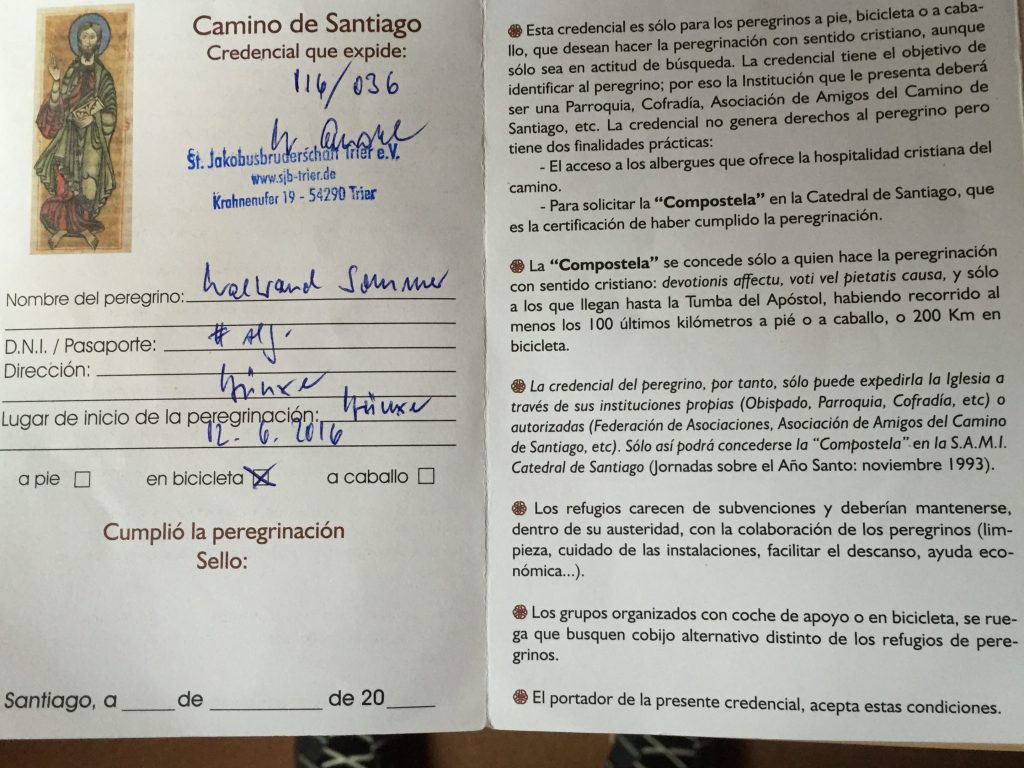 Camino de Santiago
Credencial que expide:
116/036
St. Jakobusbruderschaft Trier e.V.
www.sjb-trier.de
Krahnenufer 19 - 54290 Trier
Nombre del peregrino: Waltrand Sommer
D.N.I. / Pasaporte:
Dirección:
Hünxe
Lugar de inicio de la peregrinación: Hünxe
12. 6. 2016
a pie
en bicicleta
a caballo
Cumplió la peregrinación
Sello:
Santiago, a ____ de ________ de 20____
Esta credencial es sólo para los peregrinos a pie, bicicleta o a caba-
llo, que desean hacer la peregrinación con sentido cristiano, aunque
sólo sea en actitud de búsqueda. La credencial tiene el objetivo de
identificar al peregrino; por eso la Institución que le presenta deberá
ser una Parroquia, Cofradía, Asociación de Amigos del Camino de
Santiago, etc. La credencial no genera derechos al peregrino pero
tiene dos finalidades prácticas:
- El acceso a los albergues que ofrece la hospitalidad cristiana del
camino.
- Para solicitar la “Compostela” en la Catedral de Santiago, que
es la certificación de haber cumplido la peregrinación.
La “Compostela” se concede sólo a quien hace la peregrinación
con sentido cristiano: devotionis affectu, voti vel pietatis causa, y sólo
a los que llegan hasta la Tumba del Apóstol, habiendo recorrido al
menos los 100 últimos kilómetros a pié o a caballo, o 200 Km en
bicicleta.
La credencial del peregrino, por tanto, sólo puede expedirla la Iglesia a
través de sus instituciones propias (Obispado, Parroquia, Cofradía, etc) o
autorizadas (Federación de Asociaciones, Asociación de Amigos del Camino
de Santiago, etc). Sólo así podrá concederse la “Compostela” en la S.A.M.I.
Catedral de Santiago (Jornadas sobre el Año Santo: noviembre 1993).
Los refugios carecen de subvenciones y deberían mantenerse,
dentro de su austeridad, con la colaboración de los peregrinos (lim-
pieza, cuidado de las instalaciones, facilitar el descanso, ayuda eco-
nómica...).
Los grupos organizados con coche de apoyo o en bicicleta, se rue-
ga que busquen cobijo alternativo distinto de los refugios de pere-
grinos.
El portador de la presente credencial, acepta estas condiciones.